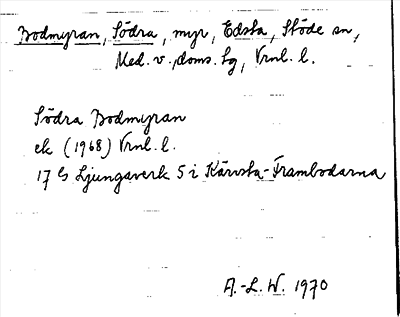 Bodmyran, Södra, myr, Edsta, Stöde sn,
Med. v. doms. tg, Vrnl. l.
Södra Bodmyran
ek (1968) Vrnl. l.
Ljungaverk 5 i Kärvsta-Frambodarna
A.-L. W. 1970